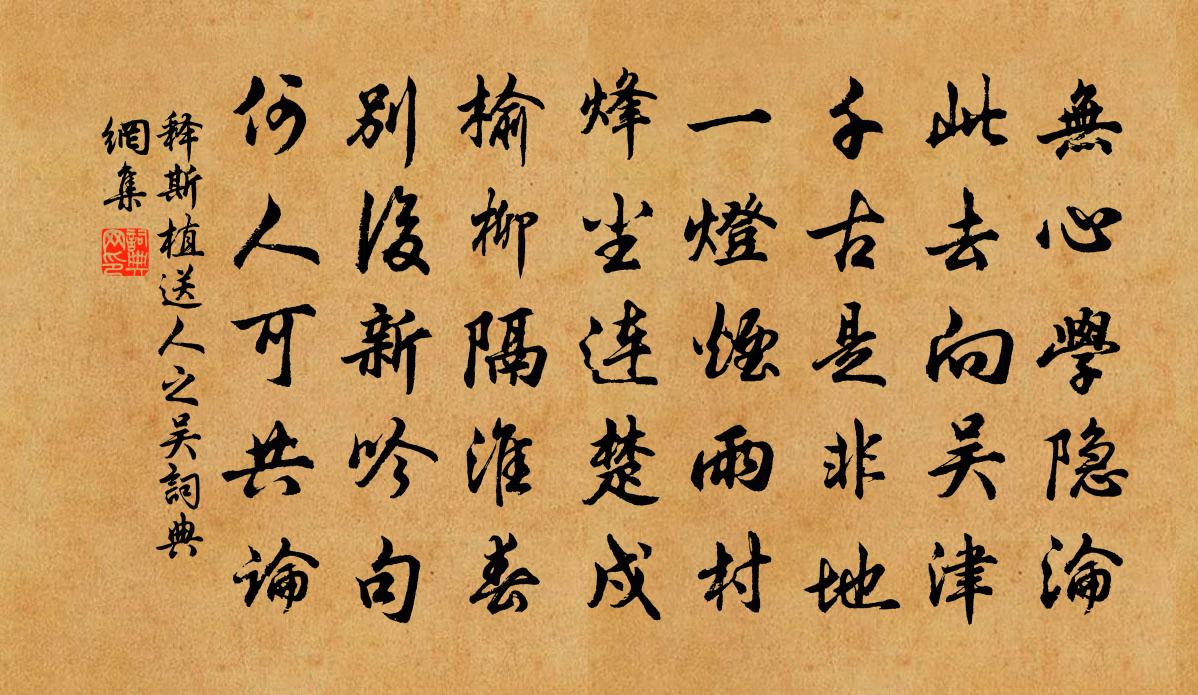 無心學隐淪
此去向吴津
千古是非地
一燈煙雨村
烽尘連楚戍
榆柳隔淮春
别後新吟句
何人可共論
释斯植送人之吴詞典
網集
詞典
网印